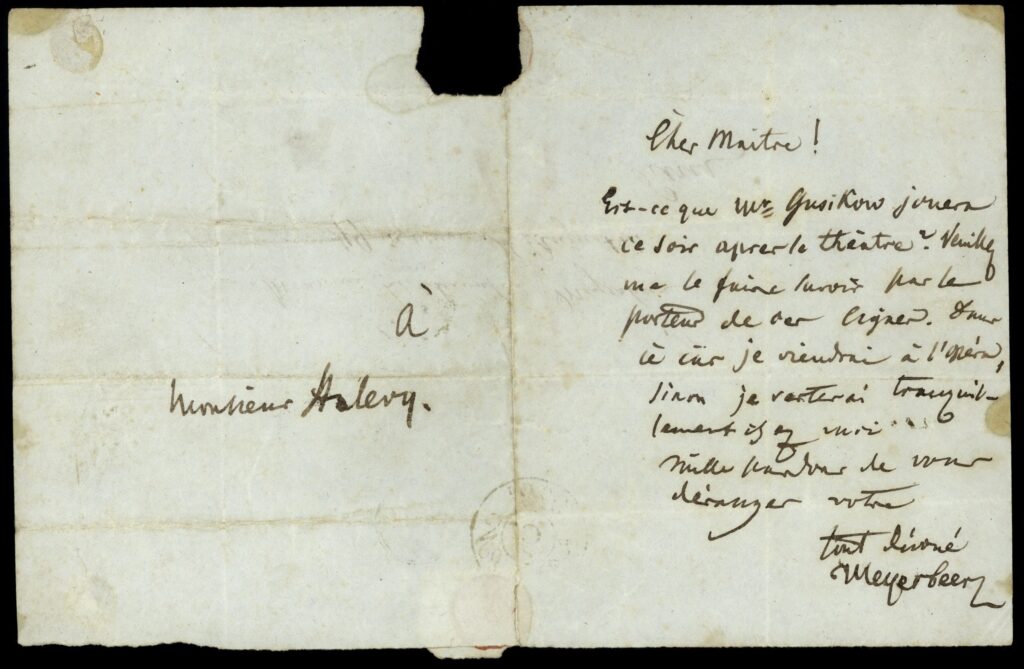 à
Monsieur Halevy.
Cher Maitre!
Est-ce que Mr Gusikow jouera
ce soir apres le théatre? Veuillez
me le faire savoir par le
porteur de ces lignes. Dans
ce cas je viendrai à l'opéra,
sinon je resterai tranquil-
lement chez moi
Mille pardons de vous
déranger votre
tout dévoué
Meyerbeer